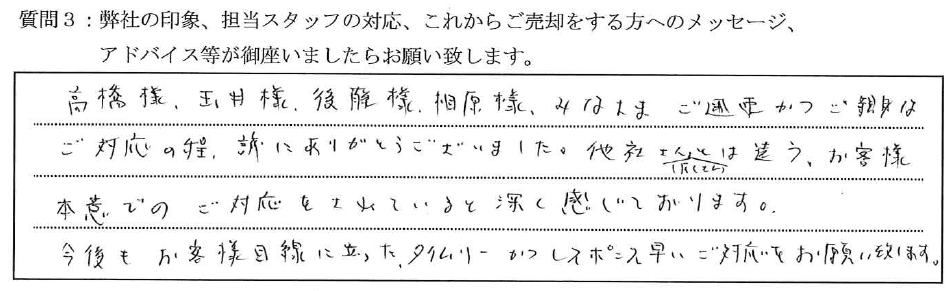 質問３：弊社の印象、担当スタッフの対応、これからご売却をする方へのメッセージ、
アドバイス等が御座いましたらお願い致します。
高橋様、玉井様、後藤様、相原様、みなさま ご迅速かつご親身な
ご対応の程、誠にありがとうございました。他社さんとは違う、お客様
本意でのご対応をされていると深く感じております。
今後もお客様目線に立った、タイムリーかつレスポンス早いご対応をお願い致します。